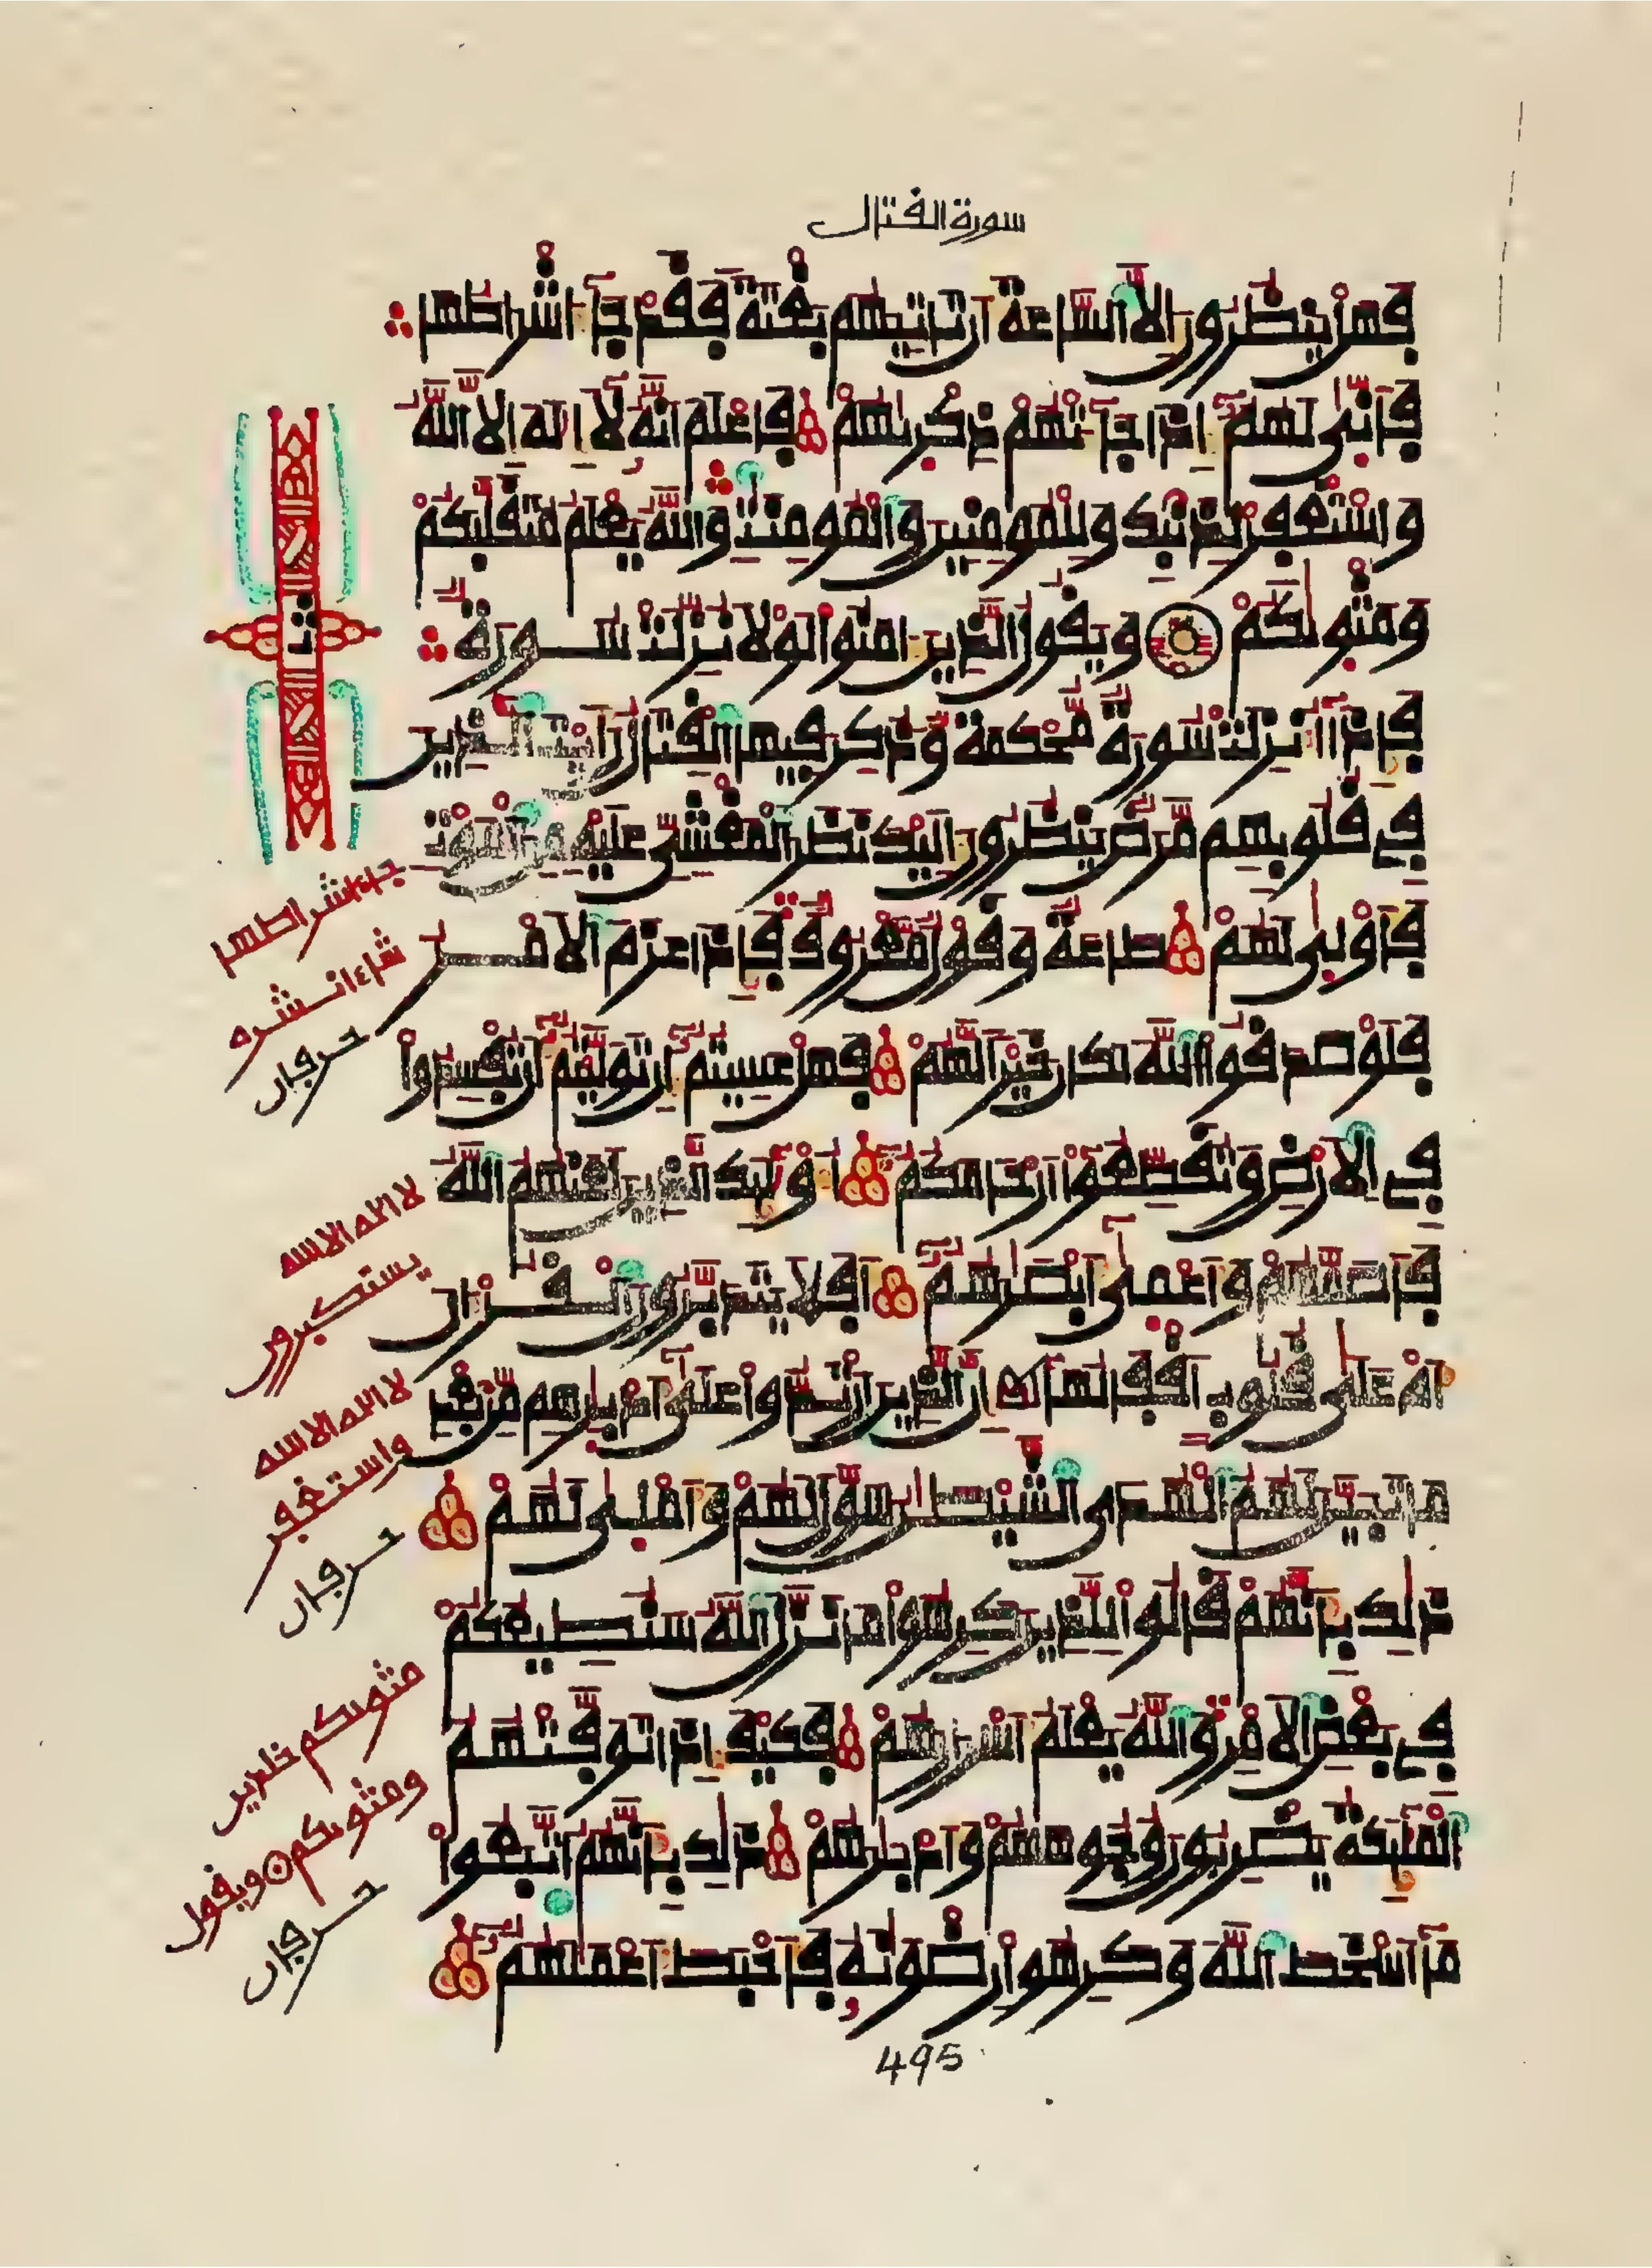 سورة القتال
فهل ينظرون إلا الساعة أن تأتيهم بغتة فقد جآ أشراطها
فأنى لهم إذا جآءتهم ذكريهم فاعلم أنه لآ إله إلا الله
واستغفر لذنبك وللمومنين والمومنت والله يعلم متقلبكم
ومثويكم ويقول الذين امنوا لولا نزلت سورة
فإذآ أنزلت سورة محكمة وذكر فيها القتال رأيت الذين
في قلوبهم مرض ينظرون إليك نظر المغشي عليه من الموت
فأولى لهم طاعة وقول معروف فإذا عزم الامر
فلو صدقوا الله لكان خيرا لهم فهل عسيتم إن توليتم أن تفسدوا
في الارض وتقطعوا أرحامكم أوليك الذين لعنهم الله
فأصمهم وأعمى أبصرهم أفلا يتدبرون القرءان
أم على قلوب أقفالها إن الذين ارتدوا على أدبرهم من بعد
ما تبين لهم الهدى الشيطن سول لهم وأملى لهم
ذلك بأنهم قالوا للذين كرهوا ما نزل الله سنطيعكم
في بعض الامر والله يعلم أسرارهم فكيف إذا توفتهم
الملئكة يضربون وجوههم وأدبرهم ذلك بأنهم اتبعوا
مآ أسخط الله وكرهوا رضونه فأحبط أعملهم
ثمن
جاء اشراطها
شاء انشره
حرفان
لا اله الا الله
يستكبرون
لا اله الا الله
واستغفر
حرفان
مثويكم خلدين
ومثويكم ويقول
حرفان
495